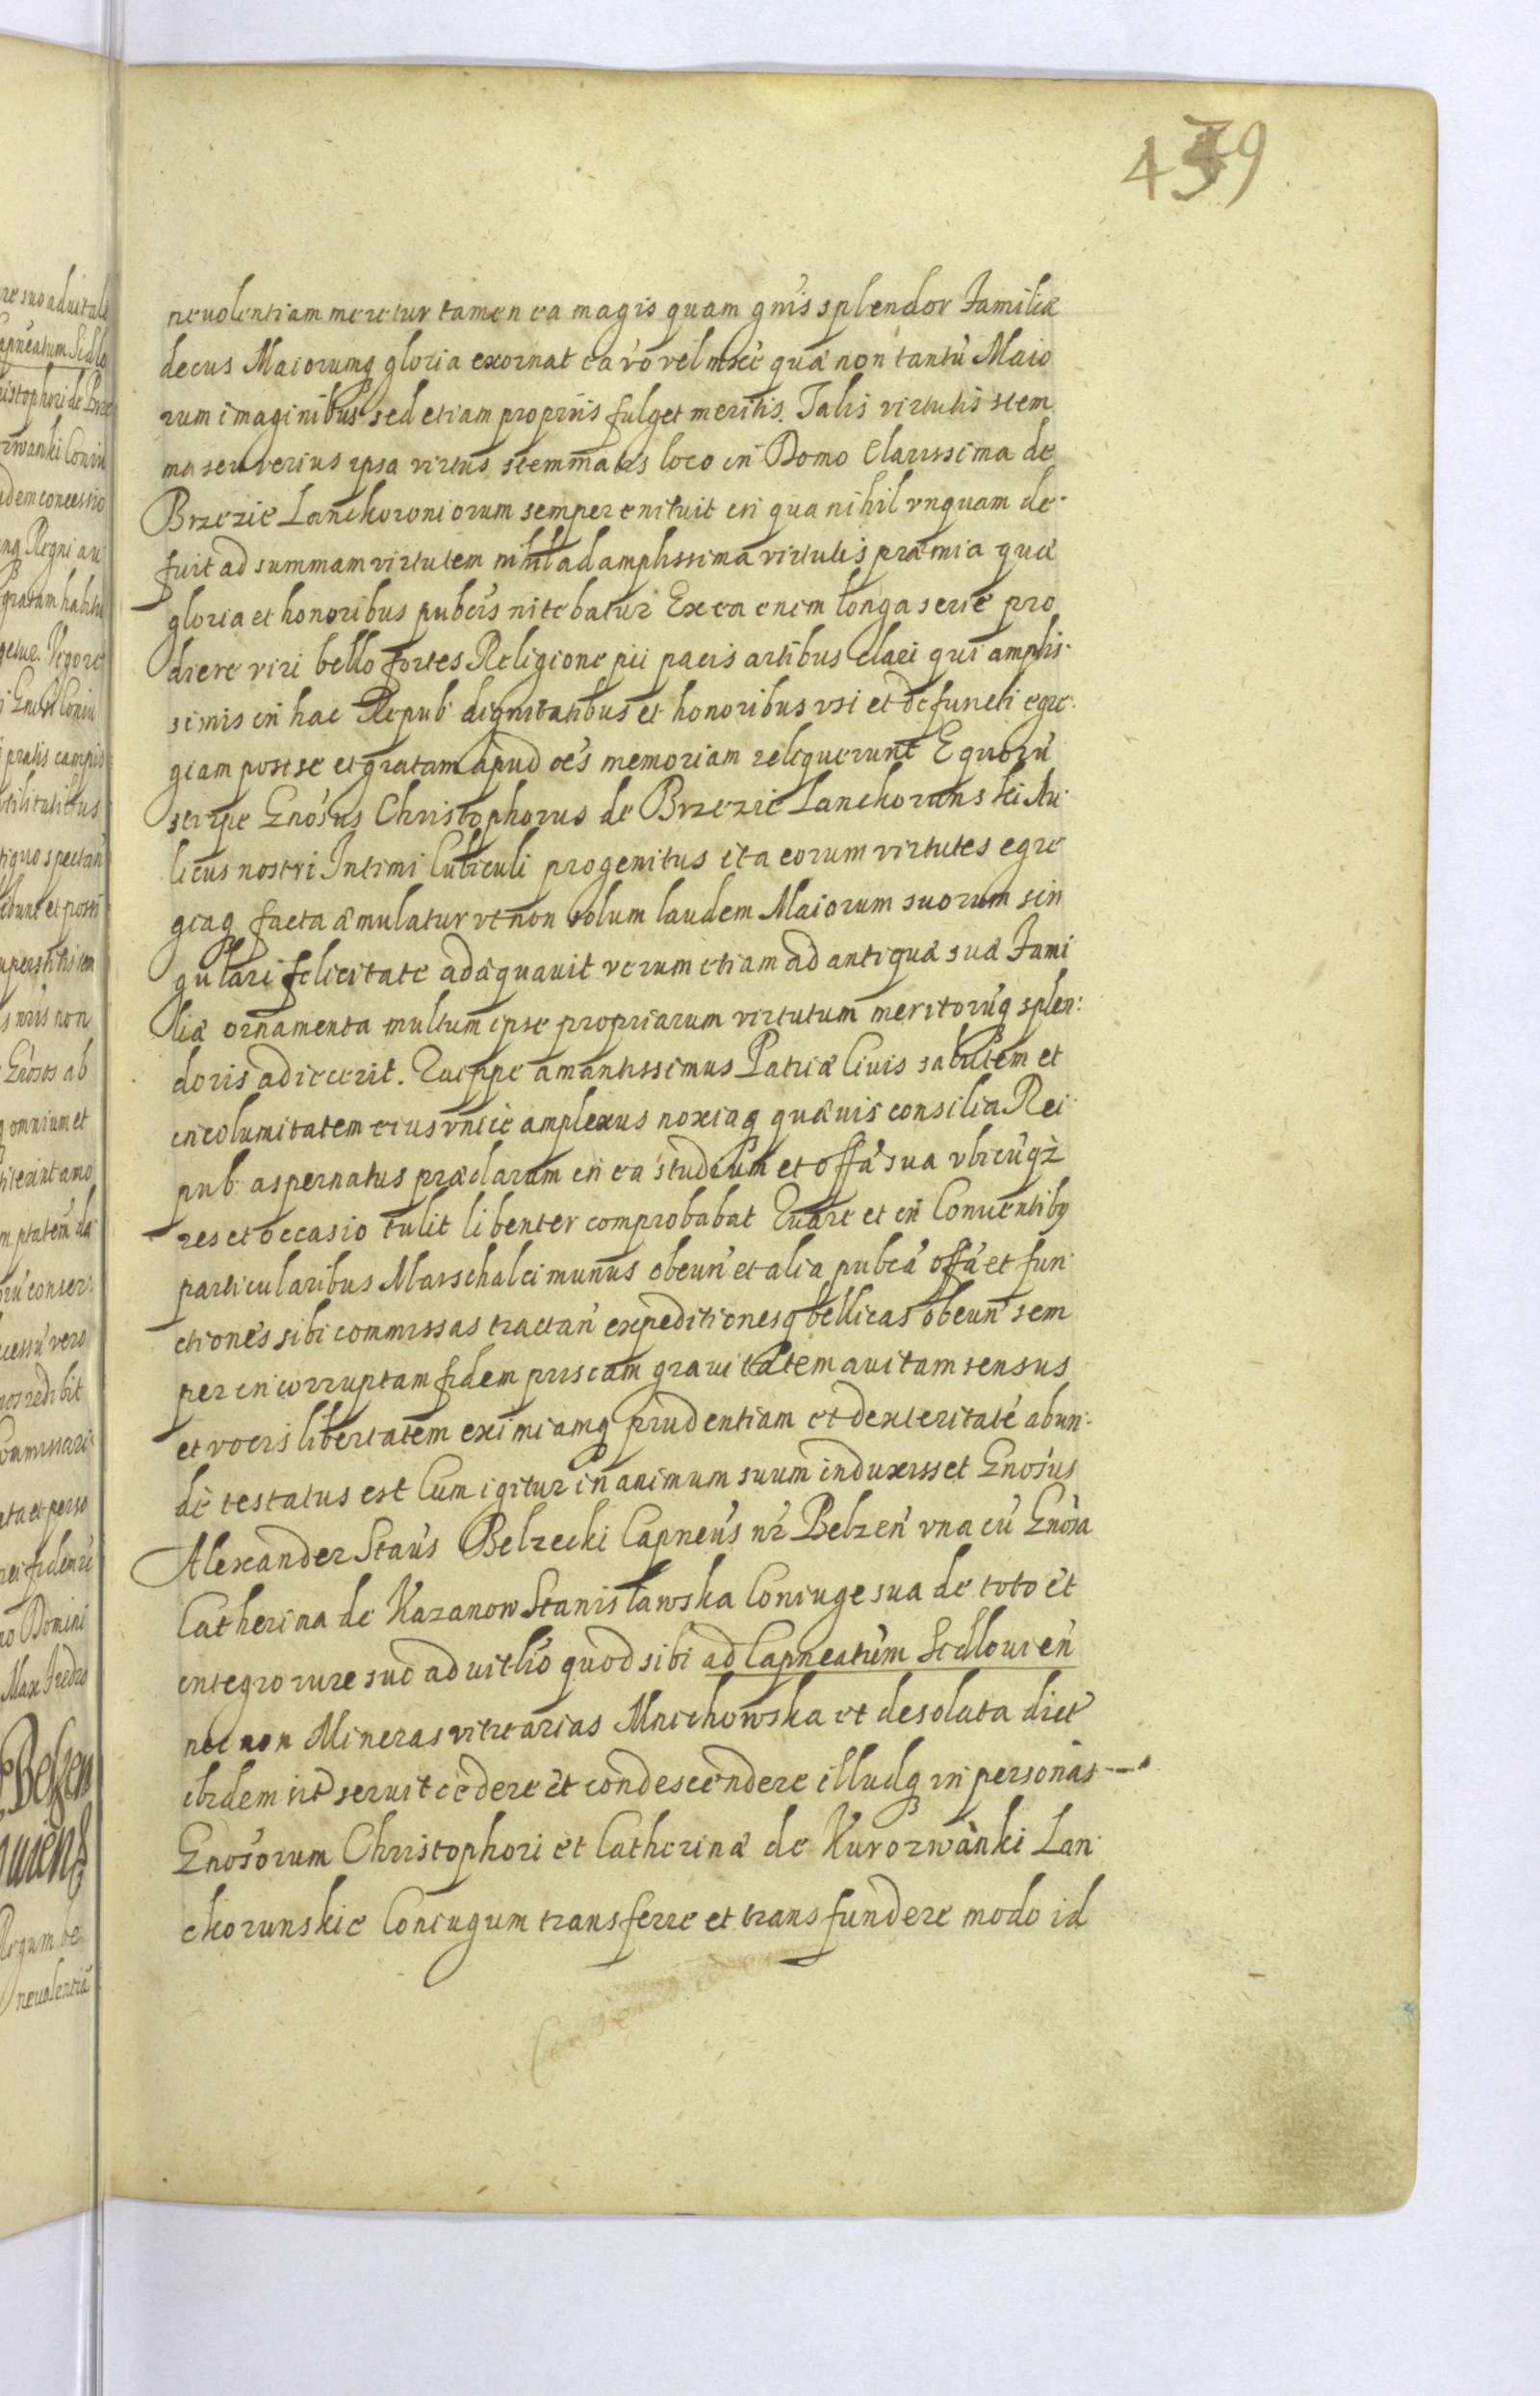 439
neuolentiam meretur tamen ea magis quam gn̄is splendor Familiæ
decus Maiorumq gloria exornat ea v́o vel mxi̇e quæ non tantú Maio
rum imaginibus sed etiam propriis fulget meritis. Talis virtutis stem
ma seu verius ipsa virtus stemmatis loco in Domo Clarissima de
Brzezie Lanckoroniorum semper enituit in qua nihil vnquam de
fuit ad summam virtutem nihil ad amplissima virtutis præmia quæ
gloria et honoribus pubcis nitebatur Ex ea enim longa serie pro
diere viri bello fortes Religione pii pacis artibus clari qui amplis
simis in hac Repub: dignitatibus et honoribus vsi et defuncti egre
giam post se et gratam apud oēs memoriam reliquerunt E quorú
stirpe Gnósus Christophorus de Brzezie Lanckorunski Au
licus nostri Intimi Cubiculi progenitus ita eorum virtutes egre
giaq facta æmulatur vt non solum laudem Maiorum suorum sin
gulari felicitate adæquauit verum etiam ad antiquæ suæ Fami
liæ ornamenta multum ipse propriarum virtutum meritorúq splen:
doris adiecerit. Quippe amantissimus Patriæ Ciuis salutem et
incolumitatem eius vnicé amplexus noxiaq quæuis consilia Rei
pub: aspernatus præclarum in ea studium et offá sua vbicúqz
res et occasio tulit libenter comprobabat Quare et in Conuentibq
particularibus Marschalci munus obeun̄ et alia pubcá offá et fun
ctiones sibi commissas tractan̄ expeditionesq bellicas obeun̄ sem
per incorruptam fidem priscam grauitatem auitam sensus
et vocis libertatem eximiamq prudentiam et dexteritaté abun:
dè testatus est Cum igitur in animum suum induxisset Gnósus
Alexander Staús Belzecki Capneús nr̄ Belzen̄ vna cú Gnósa
Catherina de Kazanow Stanisławska Coniuge sua de toto et
integro iure suo aduitlió quod sibi ad Capneatúm Sedlouien̄
nec non Mineras vitrearias Mnichowska et desolata dict̄
ibidem seruit cedere et condescendere illudq in personas
Gnósorum Christophori et Catherinæ de Kurozwànki Lan
ckorunskie Coniugum transferre et transfundere modo id